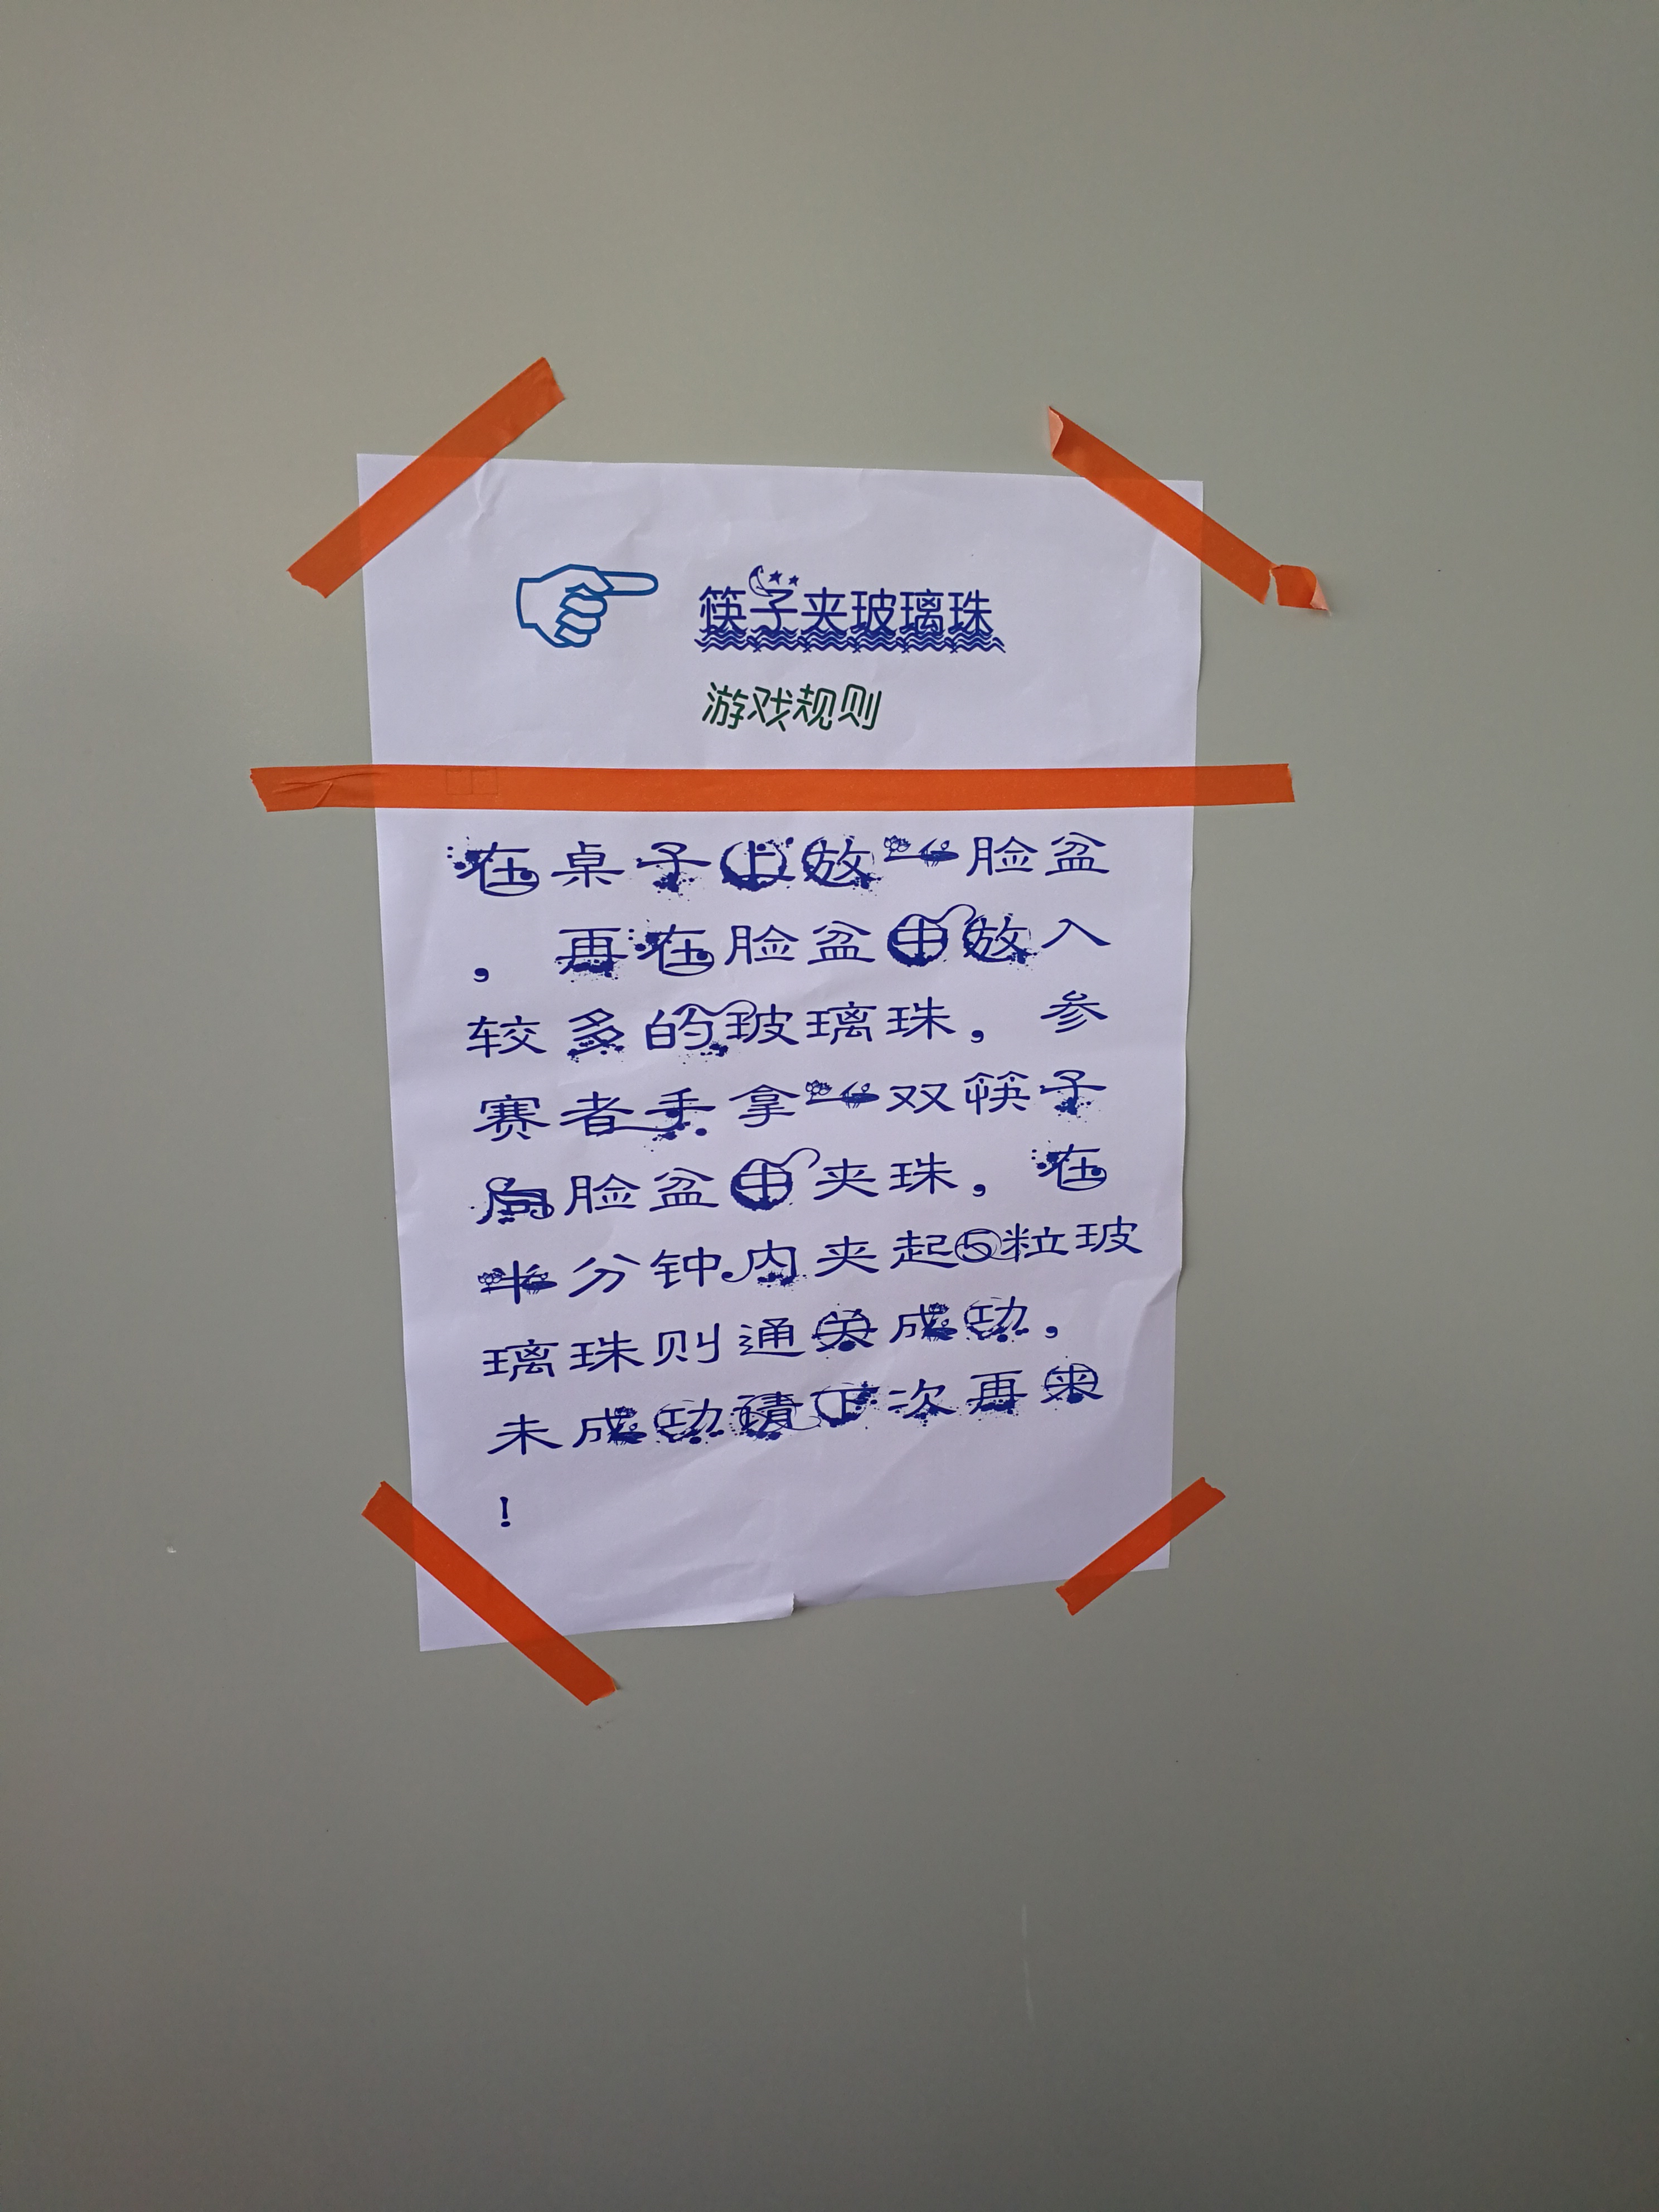 筷子夹玻璃珠
游戏规则
在桌子上放一脸盆
，再在脸盆中放入
较多的玻璃珠，参
赛者手拿一双筷子
向脸盆中夹珠，在
半分钟内夹起5粒玻
璃珠则通关成功，
未成功请下次再来
！